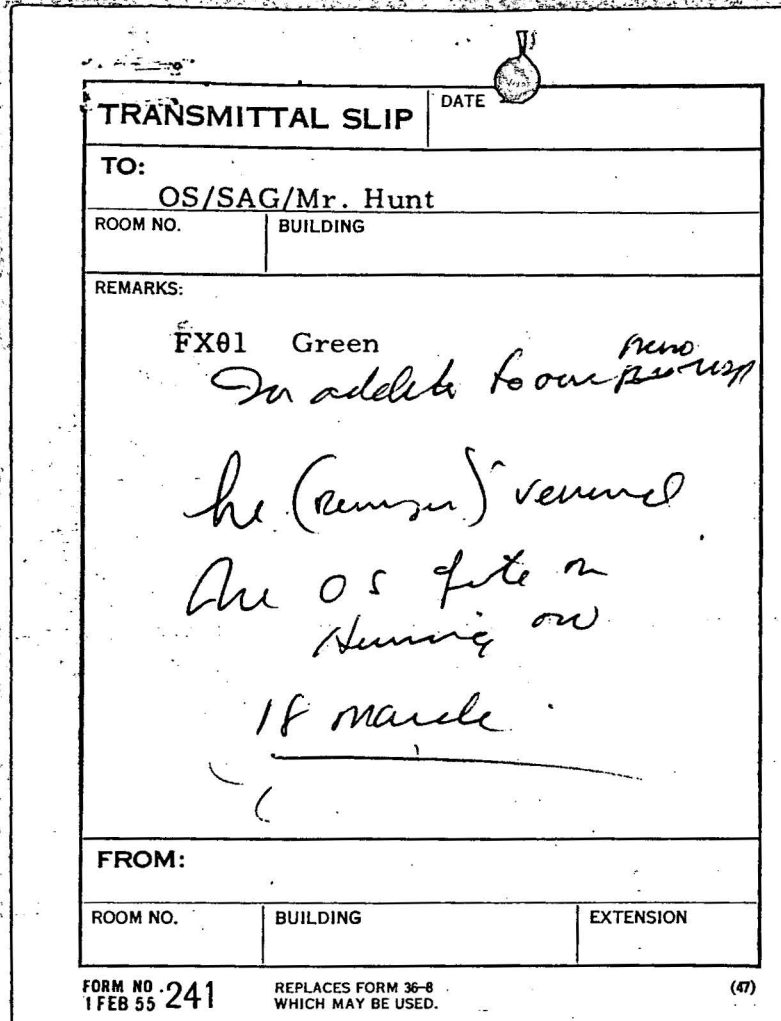 TRANSMITTAL SLIP
DATE
TO:
OS/SAG/Mr. Hunt
ROOM NO.
BUILDING
REMARKS:
FX01 Green
memo
In addition to our
he ( ) reviewed
the OS file on
Hemming on
18 March
FROM:
ROOM NO.
BUILDING
EXTENSION
FORM NO. 241
1 FEB 55
REPLACES FORM 36-8
WHICH MAY BE USED.
(47)